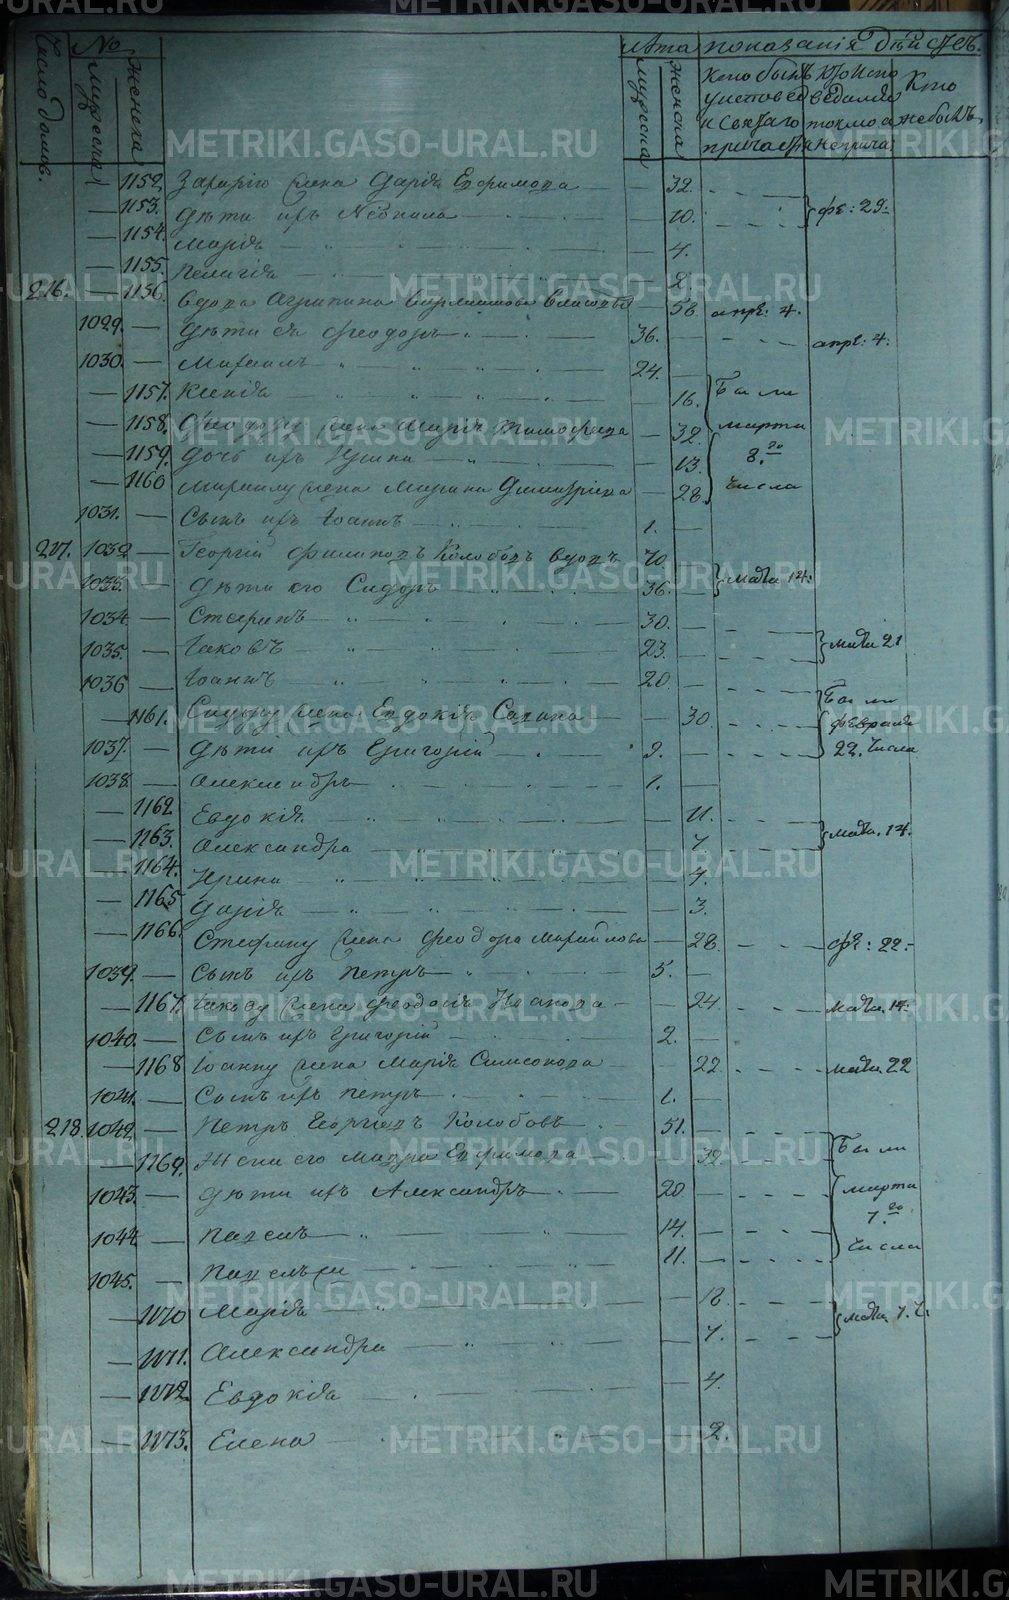 Число домовъ.
№
Мужеска
Женска
Лѣта
Мужеска
Женска
показанія дѣйствъ.
Кто былъ у исповѣд и Святаго причастія
Кто испо ведался токмо а не прича
Кто не былъ
1152. Захарію жена Дарія Ефимова 32.
1153. Дѣти ихъ 10. фе: 29.
1154. Марія 4.
1155. Пелагія 2.
216. 1156. вдова Агрипина 58 апре: 4.
1029. Дѣти ея Феодоръ 36. апре: 4.
1030. Михаилъ 24.
1157. Ксенія 16. Были
1158. Феодору жена Марія Тимофеева 32. марта
1159. дочь ихъ Ирина 13. 8.го
1160 Михаилу жена Марина Димитріева 28. числа
1031. Сынъ ихъ Іоаннъ 1.
217. 1032 Георгій Филиповъ Колобовъ вдовъ 70. марта 14.
1033. Дѣти его Сидоръ 36.
1034 Стефанъ 30.
1035. Іаковъ 23. марта 21
1036 Іоаннъ 20.
1161. Сидору жена Евдокія 30. Были февраля
1037. Дѣти ихъ Григорій 2. 22. числа
1038. Александръ 1.
1162 Евдокія 11.
1163. Александра 7 марта. 14.
1164. Ирина 4.
1165 Дарія 3.
1166. Стефану жена Феодора Михайлова 28 фе: 22.
1039. Сынъ ихъ Петръ 5.
1167. Іакову жена Иванова 24. марта 14.
1040. Сынъ ихъ Григорій 2.
1168 Іоанну жена Марія Симеонова 22 марта 22
1041. Сынъ ихъ Петръ 1.
218. 1042. Петръ Георгіевъ Колобовъ 51. Были
1169. Жена его Мавра Ефимова 39
1043. Дѣти ихъ Александръ 20. марта
1044. Павелъ 14. 7.го
1045. 11. числа
1170 Марія
1171. Александра 7. марта 7. ч.
1172. Евдокія 4.
1173. Елена 2.
METRIKI.GASO-URAL.RU